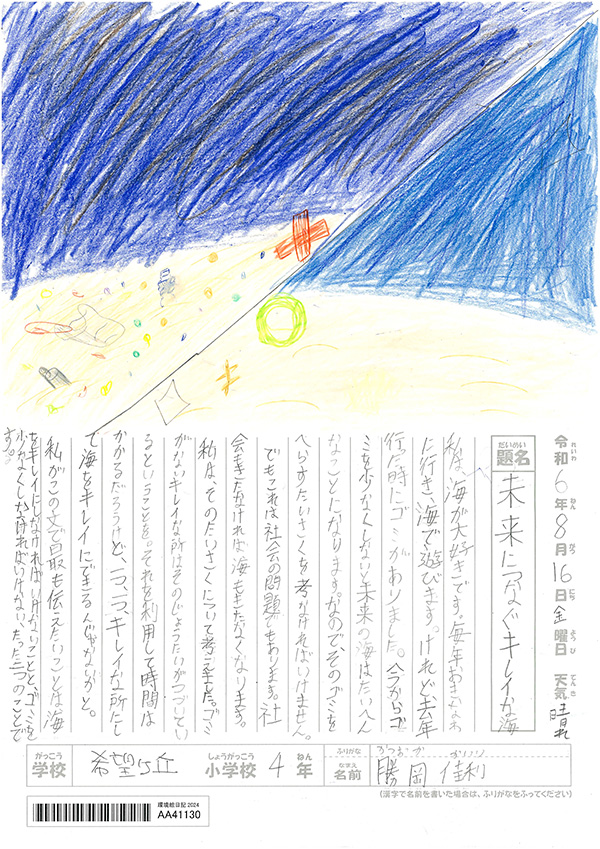 令和6年8月16日金曜日 天気 晴れ
れいわ ねん がつ にち ようび てんき
だいめい
題名 未来につなぐキレイな海
私は、海が大好きです。毎年おきなわ
に行き、海で遊びます。けれど去年
行た時にゴミがありました。今からゴ
ミを少なくしないと未来の海はたいへん
なことになります。なので、そのゴミを
へらすたいさくを考なければいけません。
でもこれは社会の問題でもあります。社
会もきたなければ海もきたなくなります。
私は、そのたいさくについて考えました。ゴミ
がないキレイな所はそのじょうたいがつづいてい
るということを。それを利用して時間は
かかるだろうけど、一つ、一つ、キレイな所にし
て海をキレイにできるんじゃないかと。
私がこの文で最も伝えたいことは海
をキレイにしなければいけないことと、ゴミを
少なくしなければいけない、たった二つのことで
す。
がっこう しょうがっこう ねん
学校 希望ヶ丘 小学校 4年
ふりがな かつおか かりり
なまえ
名前 勝岡 佳利
(漢字で名前を書いた場合は、ふりがなをふってください)
環境絵日記2024
AA41130